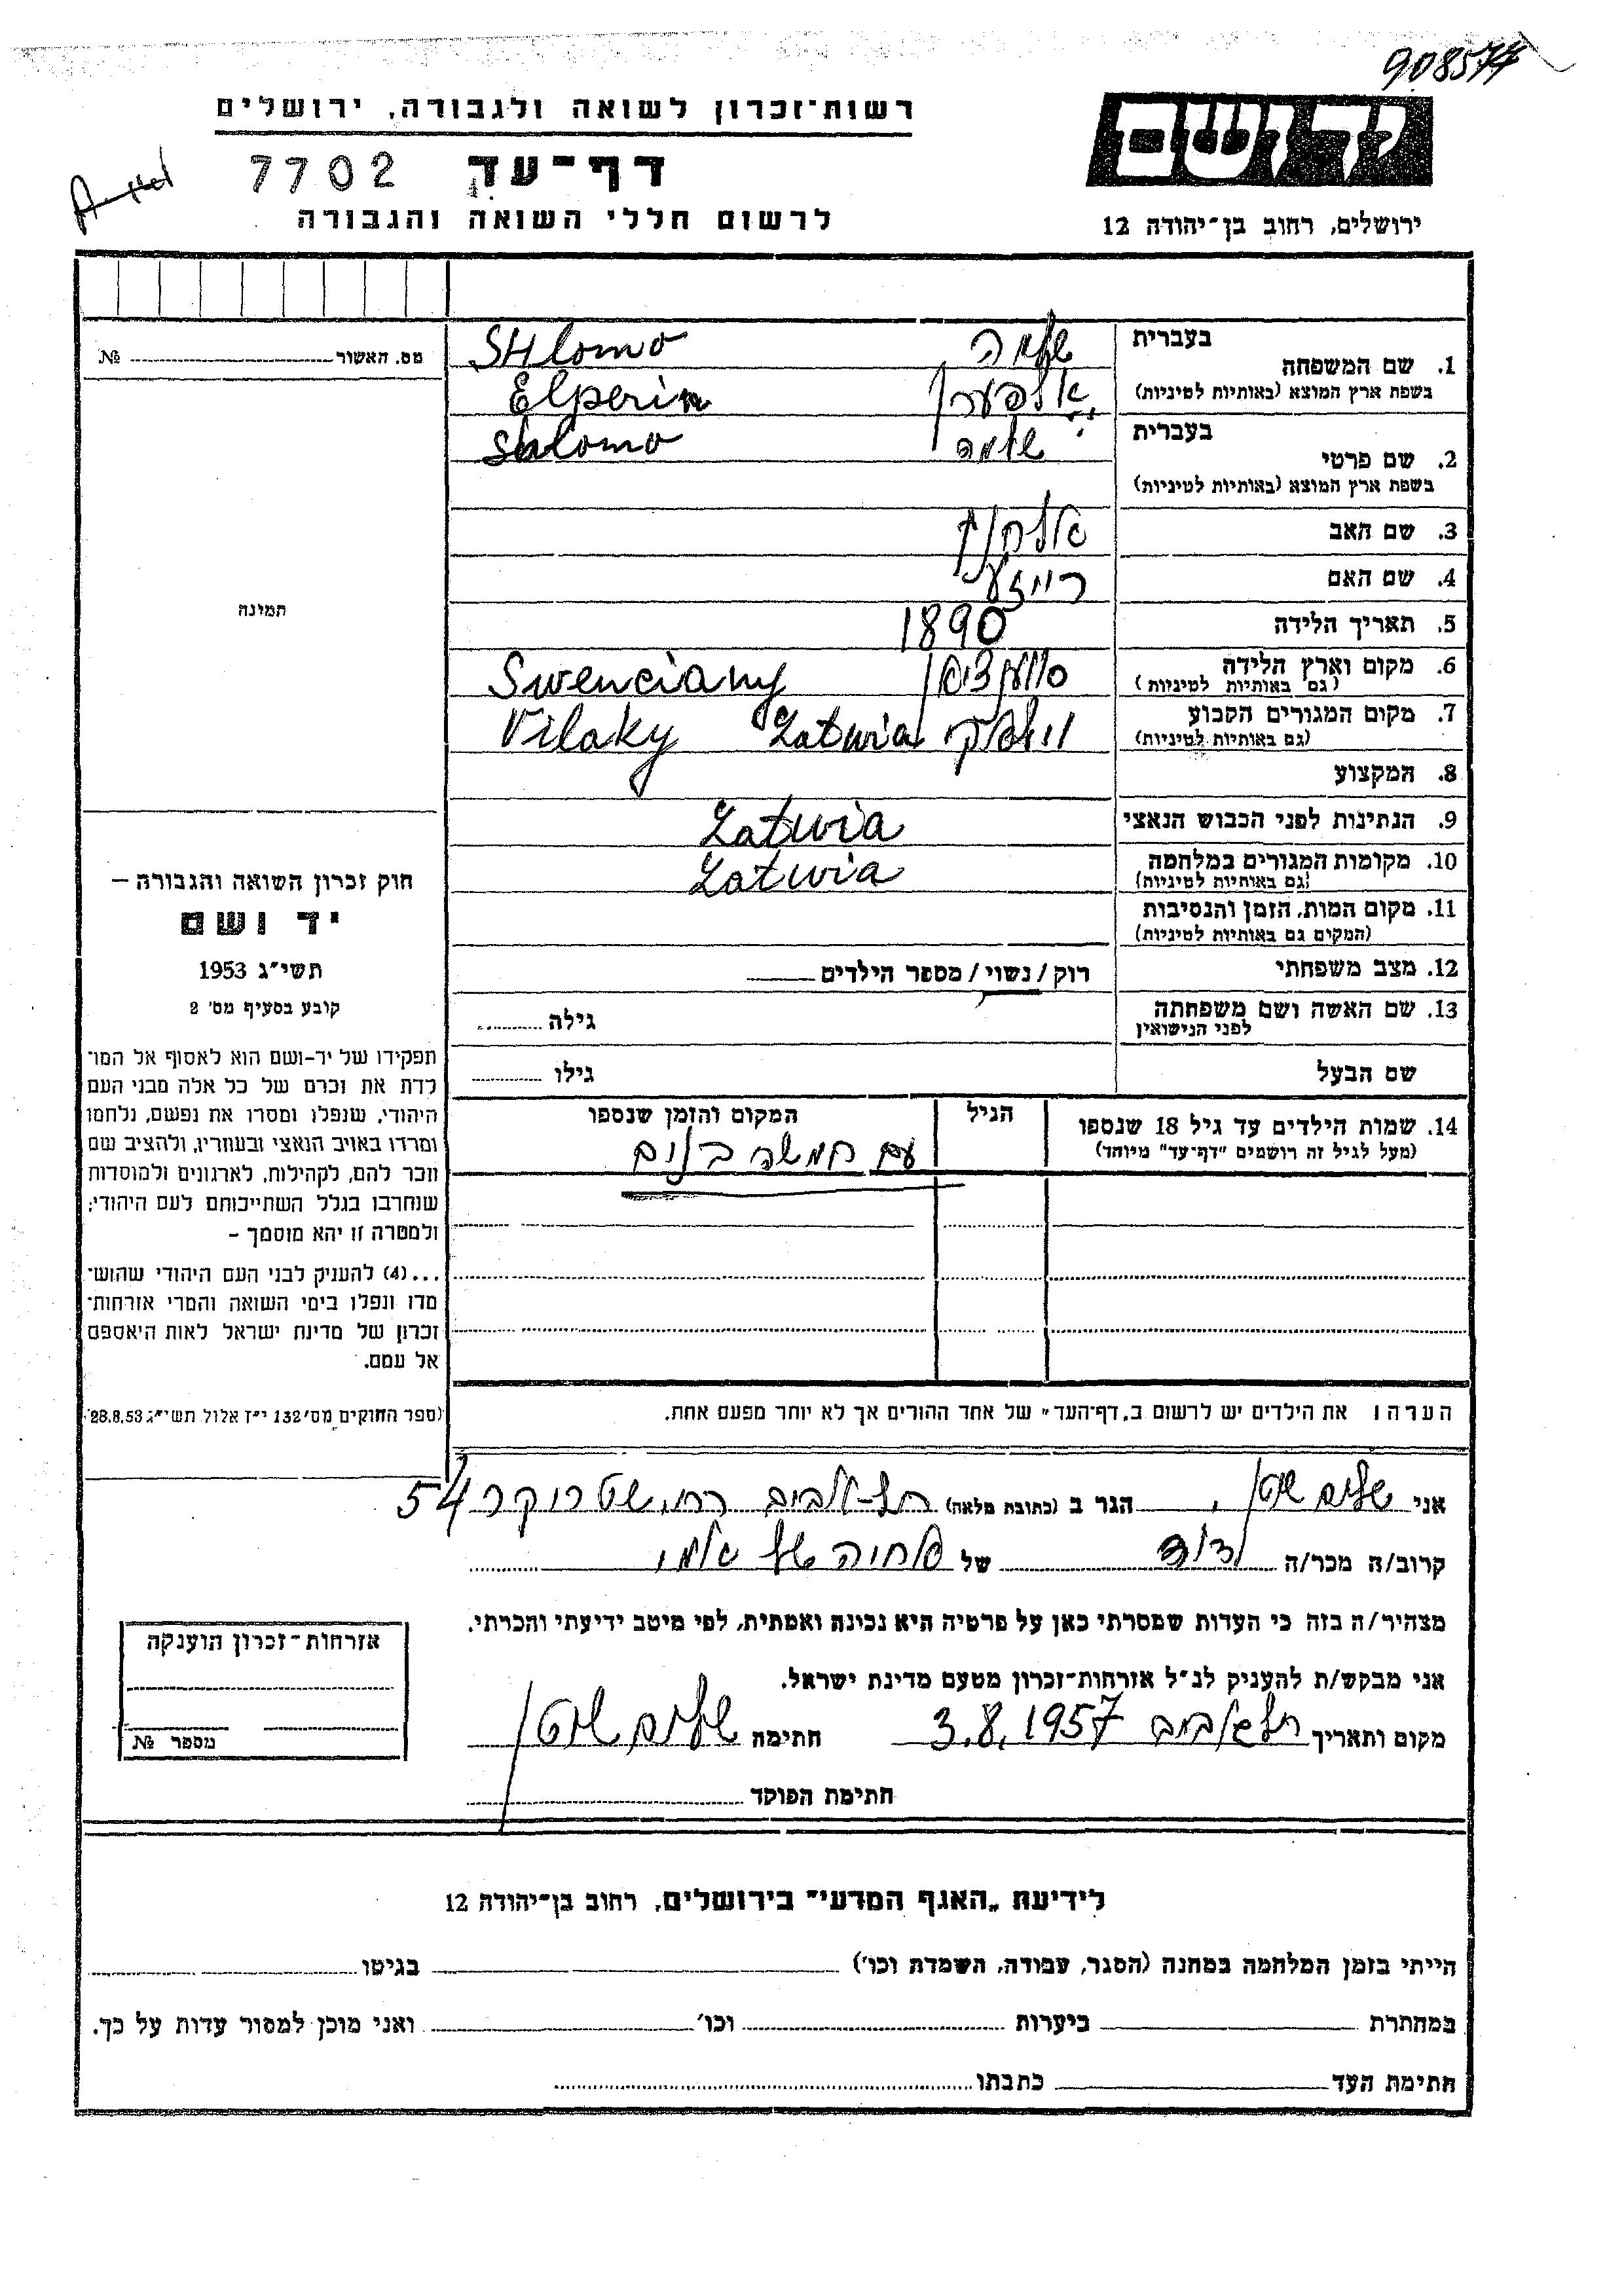 908574
רשות־זכרון לשואה ולגבורה, ירושלים
דף־עד 7702
לרשום חללי השואה והגבורה
ירושלים, רחוב בן־יהודה 12
מס. האשור № 
1. שם המשפחה בעברית שלמה SHlomo
בשפת ארץ המוצא (באותיות לטיניות) אלפערין Elperin
2. שם פרטי בעברית שלמה Shlomo
בשפת ארץ המוצא (באותיות לטיניות)
3. שם האב אלחנן
4. שם האם רייזע
5. תאריך הלידה 1890
6. מקום וארץ הלידה Swenciany
(גם באותיות לטיניות)
7. מקום המגורים הקבוע Vilaky Latwia
(גם באותיות לטיניות)
8. המקצוע
9. הנתינות לפני הכבוש הנאצי Latwia
10. מקומות המגורים במלחמה Latwia
(גם באותיות לטיניות)
11. מקום המות, הזמן והנסיבות
(המקום גם באותיות לטיניות)
12. מצב משפחתי רוק / נשוי / מספר הילדים
13. שם האשה ושם משפחתה גילה
לפני הנישואין
שם הבעל גילו
14. שמות הילדים עד גיל 18 שנספו הגיל המקום והזמן שנספו
(מעל לגיל זה רושמים "דף־עד" מיוחד)
עם חמשה בנים
תמינה
חוק זכרון השואה והגבורה –
יד ושם
תשי"ג 1953
קובע בסעיף מס' 2
תפקידו של יד-ושם הוא לאסוף אל המו־
לדת את זכרם של כל אלה מבני העם
היהודי, שנפלו ומסרו את נפשם, נלחמו
ומרדו באויב הנאצי ובעוזריו, ולהציב שם
וזכר להם, לקהילות, לארגונים ולמוסדות
שנחרבו בגלל השתייכותם לעם היהודי;
ולמטרה זו יהא מוסמך –
...(4) להעניק לבני העם היהודי שהוש־
מדו ונפלו בימי השואה והמרי אזרחות־
זכרון של מדינת ישראל לאות היאספם
אל עמם.
(ספר החוקים מס' 132 י"ז אלול תשי"ג 28.8.53)
הערה: את הילדים יש לרשום ב„דף־העד" של אחד ההורים אך לא יותר מפעם אחת.
אני שלום שיטן, הגר ב (כתובת מלאה) תל-אביב רח. שטריקר 54
קרוב/ה מכר/ה דוד של אחיה של אמי
מצהיר/ה בזה כי העדות שמסרתי כאן על פרטיה היא נכונה ואמתית, לפי מיטב ידיעתי והכרתי.
אני מבקש/ת להעניק לנ"ל אזרחות־זכרון מטעם מדינת ישראל.
מקום ותאריך תל אביב 3.8.1957 חתימה שלום שיטן
חתימת הפוקד
אזרחות־זכרון הוענקה
מספר №
לידיעת „האגף המדעי" בירושלים, רחוב בן־יהודה 12
הייתי בזמן המלחמה במחנה (הסגר, עבודה, השמדת וכו') בגיטו
במחתרת ביערות וכו' ואני מוכן למסור עדות על כך.
חתימת העד כתבתו